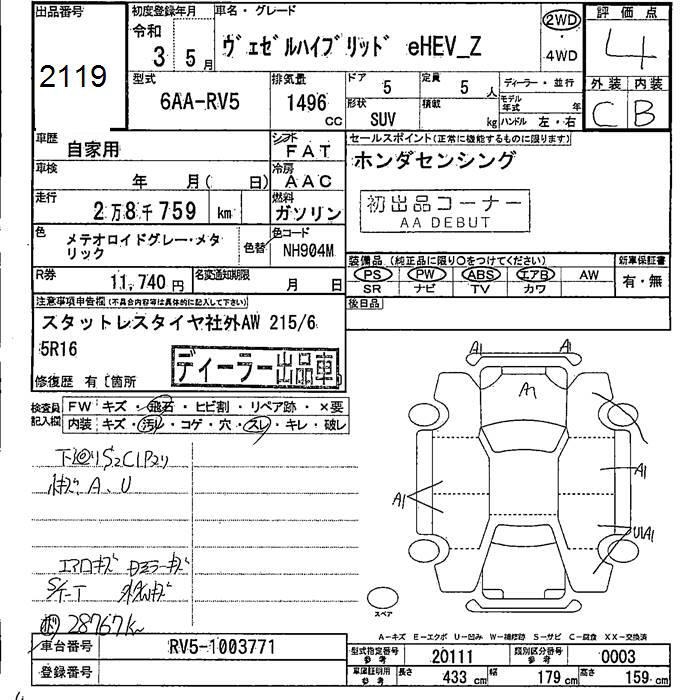 出品番号
2119
初度登録年月
令和
3年 5月
車名・グレード
ヴェゼルハイブリッド eHEV_Z
2WD
・
4WD
評価点
4
外装 内装
C B
型式
6AA-RV5
排気量
1496
cc
ドア
5
定員
5
人
形状
SUV
積載
kg
ディーラー・並行
モデル年式
年
ハンドル 左・右
車歴
自家用
シフト
FAT
車検
年 月( 日)
冷房
AAC
走行
2万8千759
km
燃料
ガソリン
色
メテオロイドグレー・メタリック
色替
色コード
NH904M
R券
11,740円
名変通知期限
月 日
セールスポイント(正常に機能するものに限ります)
ホンダセンシング
初出品コーナー
AA DEBUT
装備品(純正品に限り○をつけてください)
PS PW ABS エアB AW
SR ナビ TV カワ
新車保証書
有・無
後日品
注意事項申告欄(不具合内容等は具体的に記入して下さい)
スタットレスタイヤ社外AW 215/6
5R16
ディーラー出品車
修復歴 有〔箇所
検査員
記入欄
FW キズ・飛石・ヒビ割・リペア跡・×要
内装 キズ・汚レ・コゲ・穴・スレ・キレ・破レ
下回りS2C1P2り
A、U
エアロキズ
28767K
A1 A1
A1
A1
A1
U1A1
スペア
A-キズ E-エクボ U-凹み W-補修跡 S-サビ C-腐食 XX-交換済
車台番号
RV5-1003771
登録番号
型式指定番号
参考
20111
類別区分番号
参考
0003
車庫証明用
参考
長さ
433 cm
幅
179 cm
高さ
159 cm